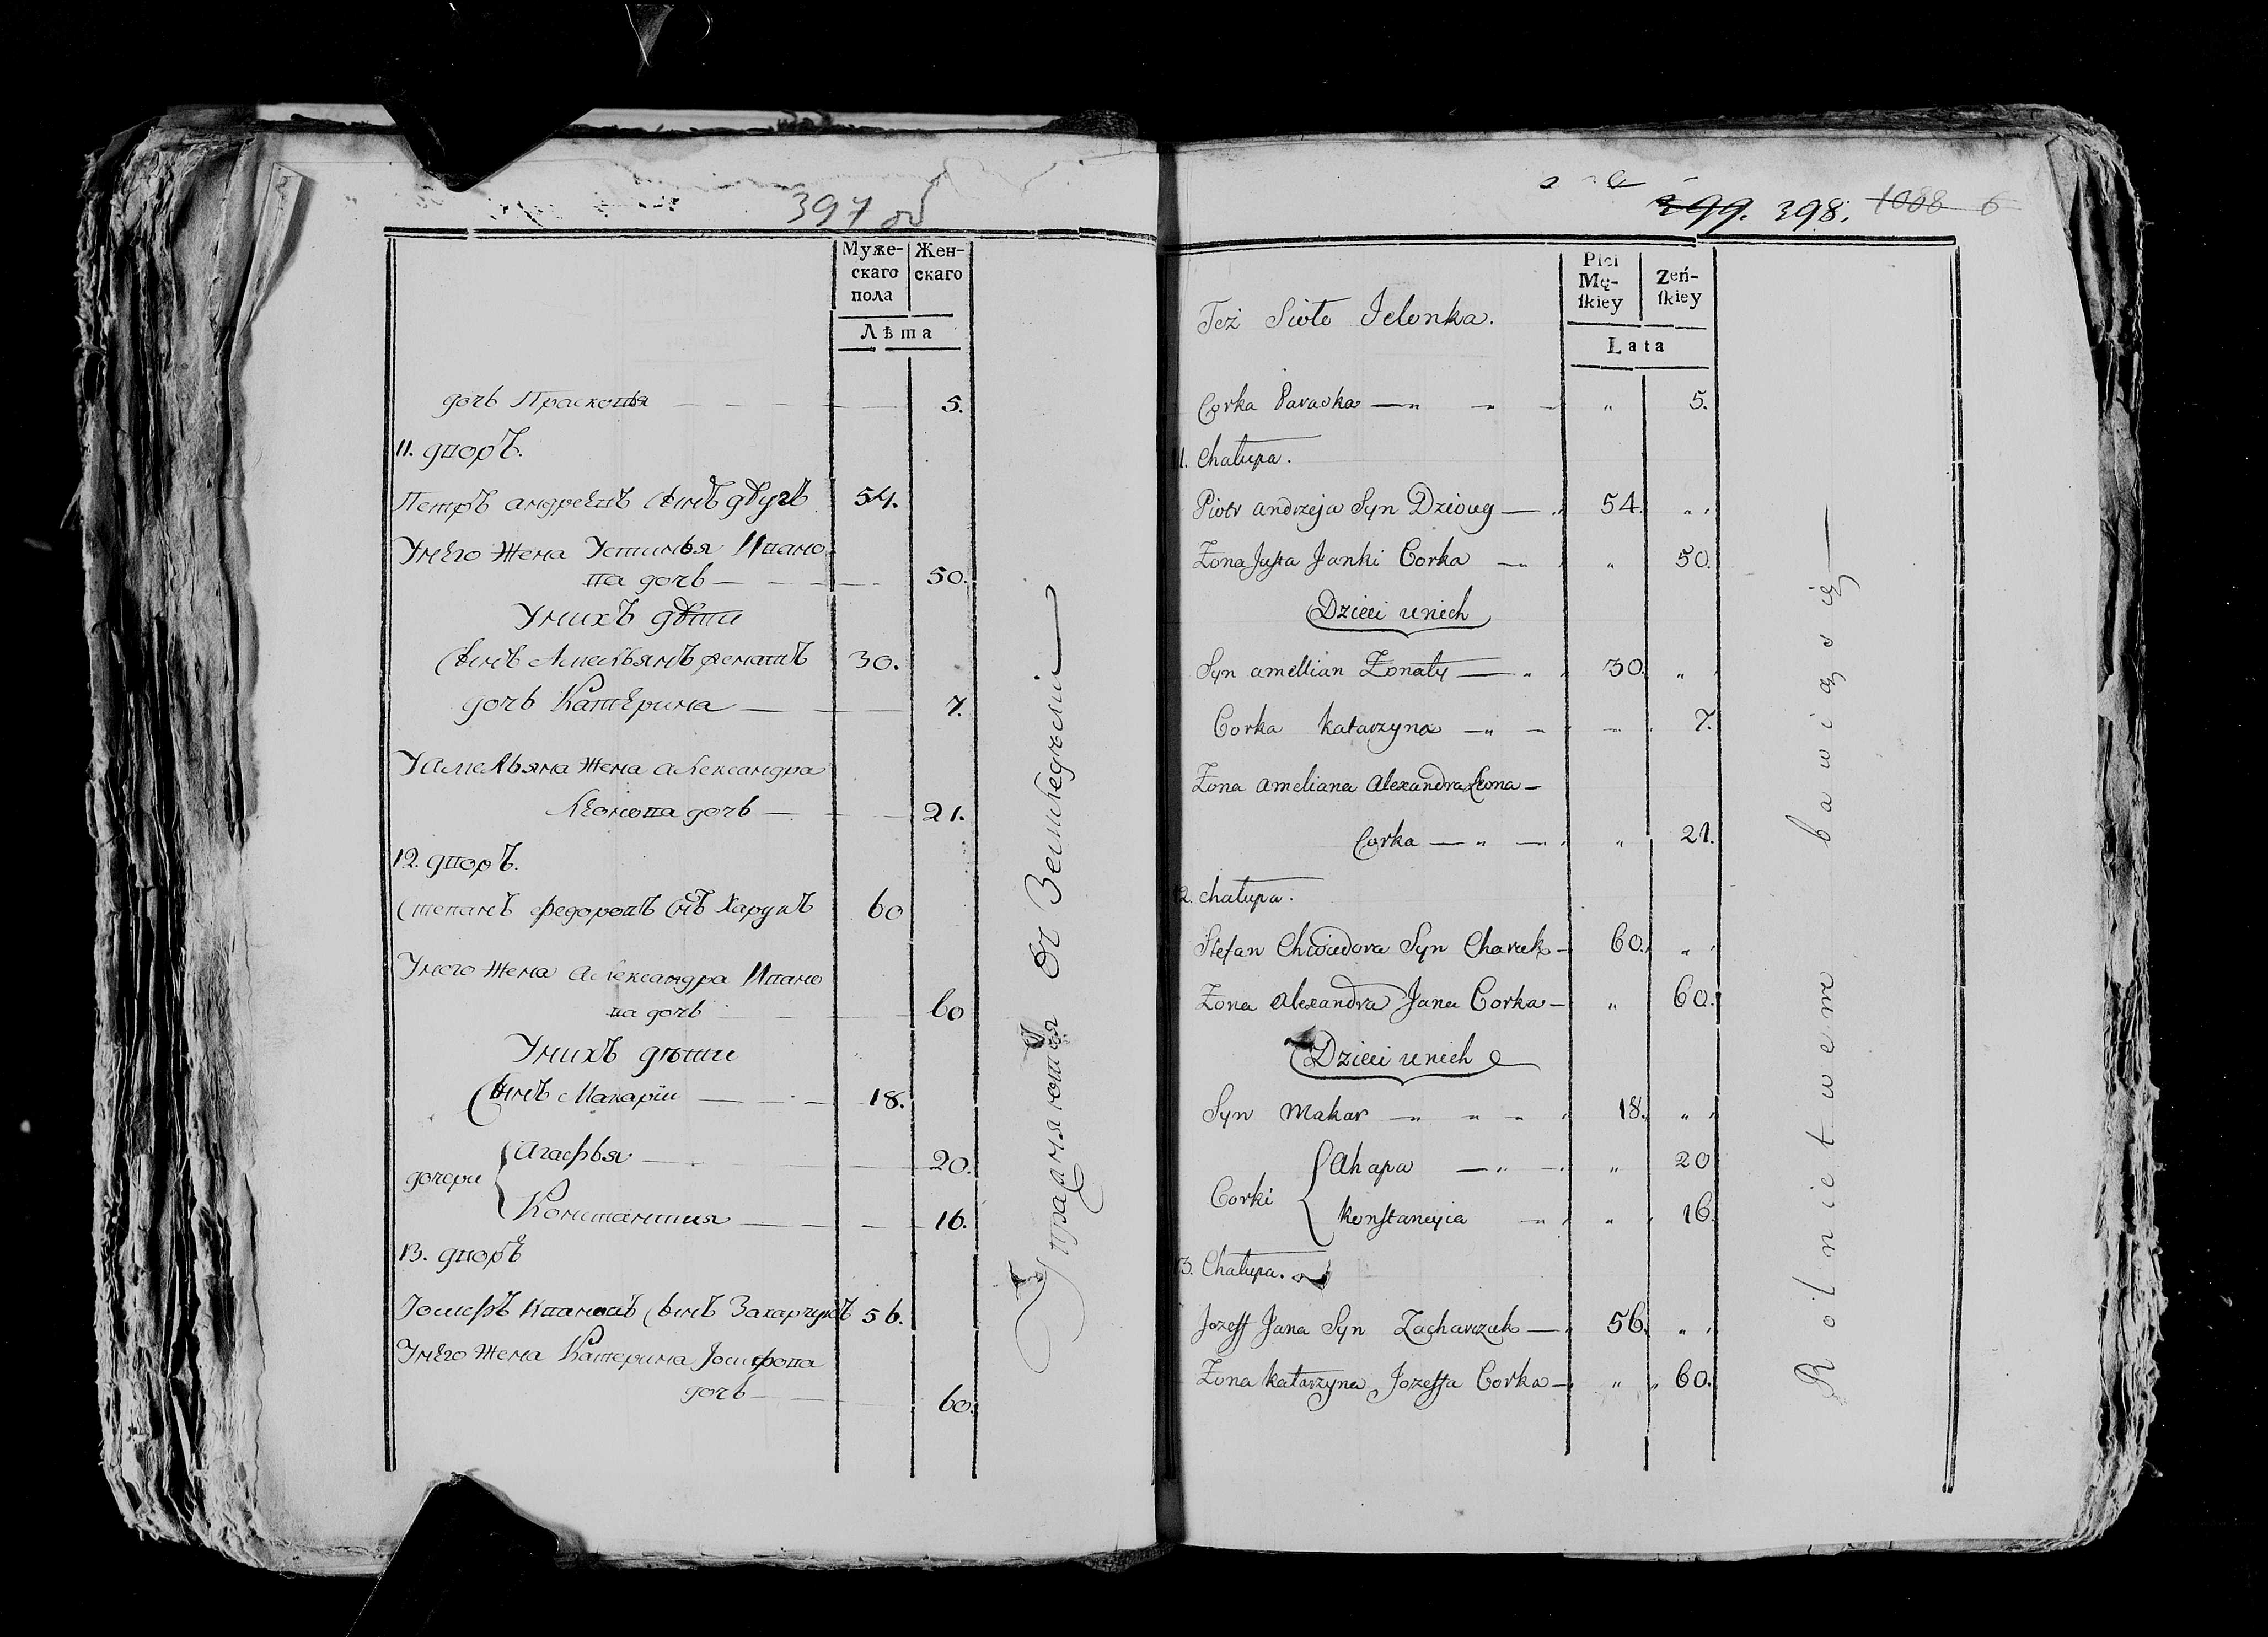 397 об
Муже-
скаго
пола
Жен-
скаго
Лѣта
дочь Прасковья 5.
11. дворъ.
Петръ андреевъ сынъ дзугъ 54.
Унего жена Устинья Ивано
ва дочь 50.
Унихъ дѣти
сынъ Амельянъ женатъ 30.
дочь Катерина 7.
Уамельяна жена александра
Леонова дочь 21.
12. дворъ.
Степанъ Федоровъ сынъ Харукъ 60
Унего жена александра Ивано
ва дочь 60
Унихъ дѣти
сынъ Макарiи 18.
дочери
Агафья 20.
Констанция 16.
13. дворъ
Iосифъ Ивановъ сынъ Захарчукъ 56.
Унего жена Катерина Iосифова
дочь 60.
Упражняются въ Земледѣлiи
399. 398. 1088 6
Płci
Mę-
skiey
Zeń-
skiey
Lata
Też Sioło Jelonka.
Corka Paraska " 5.
11. Chałupa.
Piotr andrzeja Syn Dzioug 54. "
Żona Justa Janki Corka " 50.
Dzieci unich
Syn amellian Żonaty 30. "
Corka katarzyna 7.
Żona ameliana alexandra Leona
Corka " 21.
12. chałupa.
Stefan Chwiedora Syn Charuk 60. "
Żona alexandra Jana Corka " 60.
Dzieci unich
Syn Makar 18. "
Corki
ahapa " 20
konstancyia " 16.
13. Chałupa.
Jozeff Jana Syn Zacharczuk 56. "
Żona katarzyna Jozeffa Corka " 60.
Rolnictwem bawią się